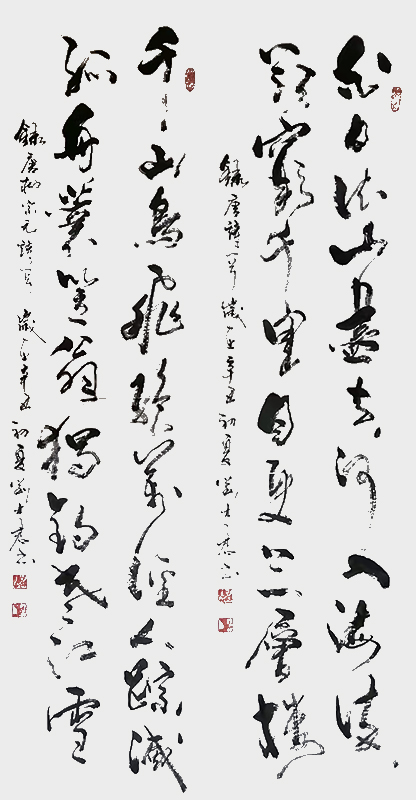 白日依山盡黃河入海流
欲窮千里目更上一層樓
錄唐詩一首 歲在辛丑初夏
千山鳥飛絕萬徑人蹤滅
孤舟蓑笠翁獨釣寒江雪
錄唐柳宗元詩一首 歲在辛丑初夏